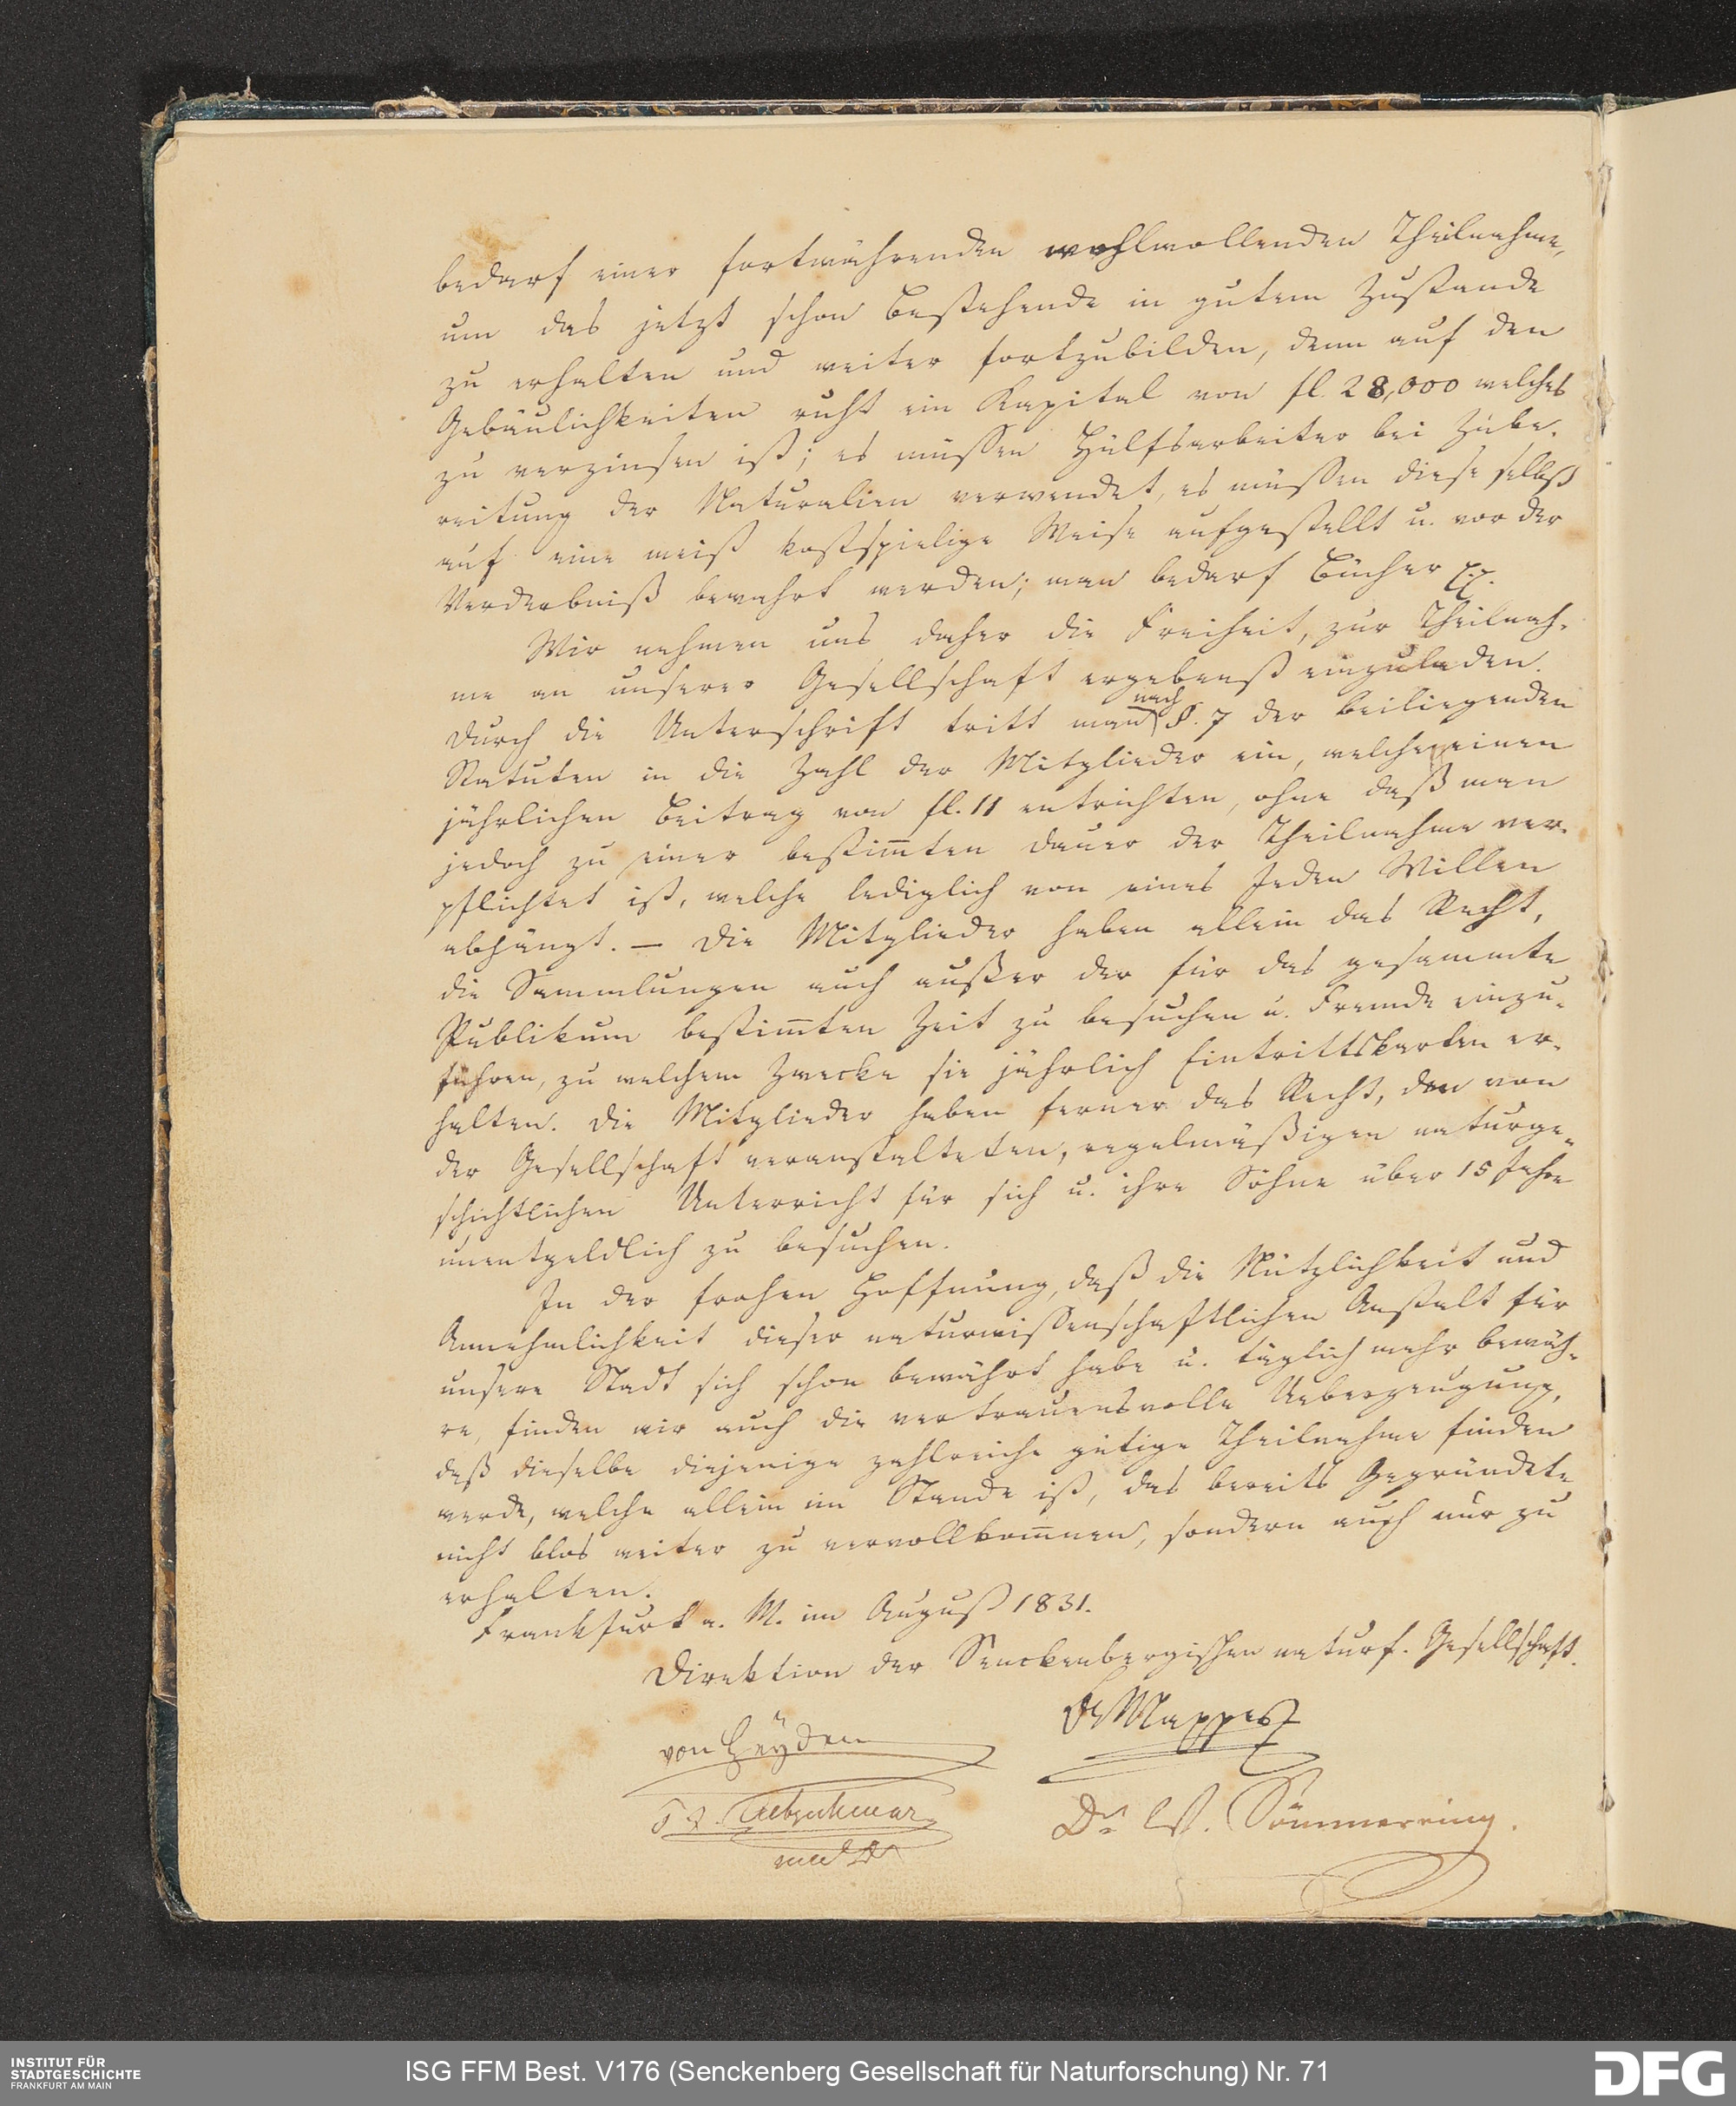 bedarf einer fortwährenden wohlwollenden Theilnahme,
um das jetzt schon Bestehende in gutem Zustande
zu erhalten und weiter fortzubilden, denn auf den
Gebäulichkeiten ruht ein Kapital von fl. 28,000 welches
zu verzinsen ist; es müssen Hülfsarbeiter bei Zube-
reitung der Naturalien verwendet, es müssen diese selbst
auf eine meist kostspielige Weise aufgestellt u. vor der
Verderbniß bewahrt werden; man bedarf Bücher pp.
Wir nehmen uns daher die Freiheit, zur Theilnah-
me an unserer Gesellschaft ergebenst einzuladen.
Durch die Unterschrift tritt man nach §. 7 der beiliegenden
Statuten in die Zahl der Mitglieder ein, welche einen
jährlichen Beitrag von fl. 11 entrichten, ohne daß man
jedoch zu einer bestim̅ten Dauer der Theilnahme ver-
pflichtet ist, welche lediglich von eines Jeden Willen
abhängt. — Die Mitglieder haben allein das Recht,
die Sammlungen auch außer der für das gesammte
Publikum bestim̅ten Zeit zu besuchen u. Fremde einzu-
führen, zu welchem Zwecke sie jährlich Eintrittskarten er-
halten. Die Mitglieder haben ferner das Recht, den von
der Gesellschaft veranstalteten, regelmäßigen naturge-
schichtlichen Unterricht für sich u. ihre Söhne über 15 Jahre
unentgeldlich zu besuchen.
In der frohen Hoffnung, daß die Nützlichkeit und
Annehmlichkeit dieser naturwissenschaftlichen Anstalt für
unsere Stadt sich schon bewährt habe u. täglich mehr bewäh-
re, finden wir auch die vertrauensvolle Ueberzeugung,
daß dieselbe diejenige zahlreiche gütige Theilnahme finden
werde, welche allein im Stande ist, das bereits Gegründete
nicht blos weiter zu vervollkom̅nen, sondern auch nur zu
erhalten.
Frankfurt a. M. im August 1831.
Direktion der Senckenbergischen naturf. Gesellschaft.
von Heÿden
Dr Mappes
med Dr
Dr W. Sömmerring.
INSTITUT FÜR
STADTGESCHICHTE
FRANKFURT AM MAIN
ISG FFM Best. V176 (Senckenberg Gesellschaft für Naturforschung) Nr. 71
DFG